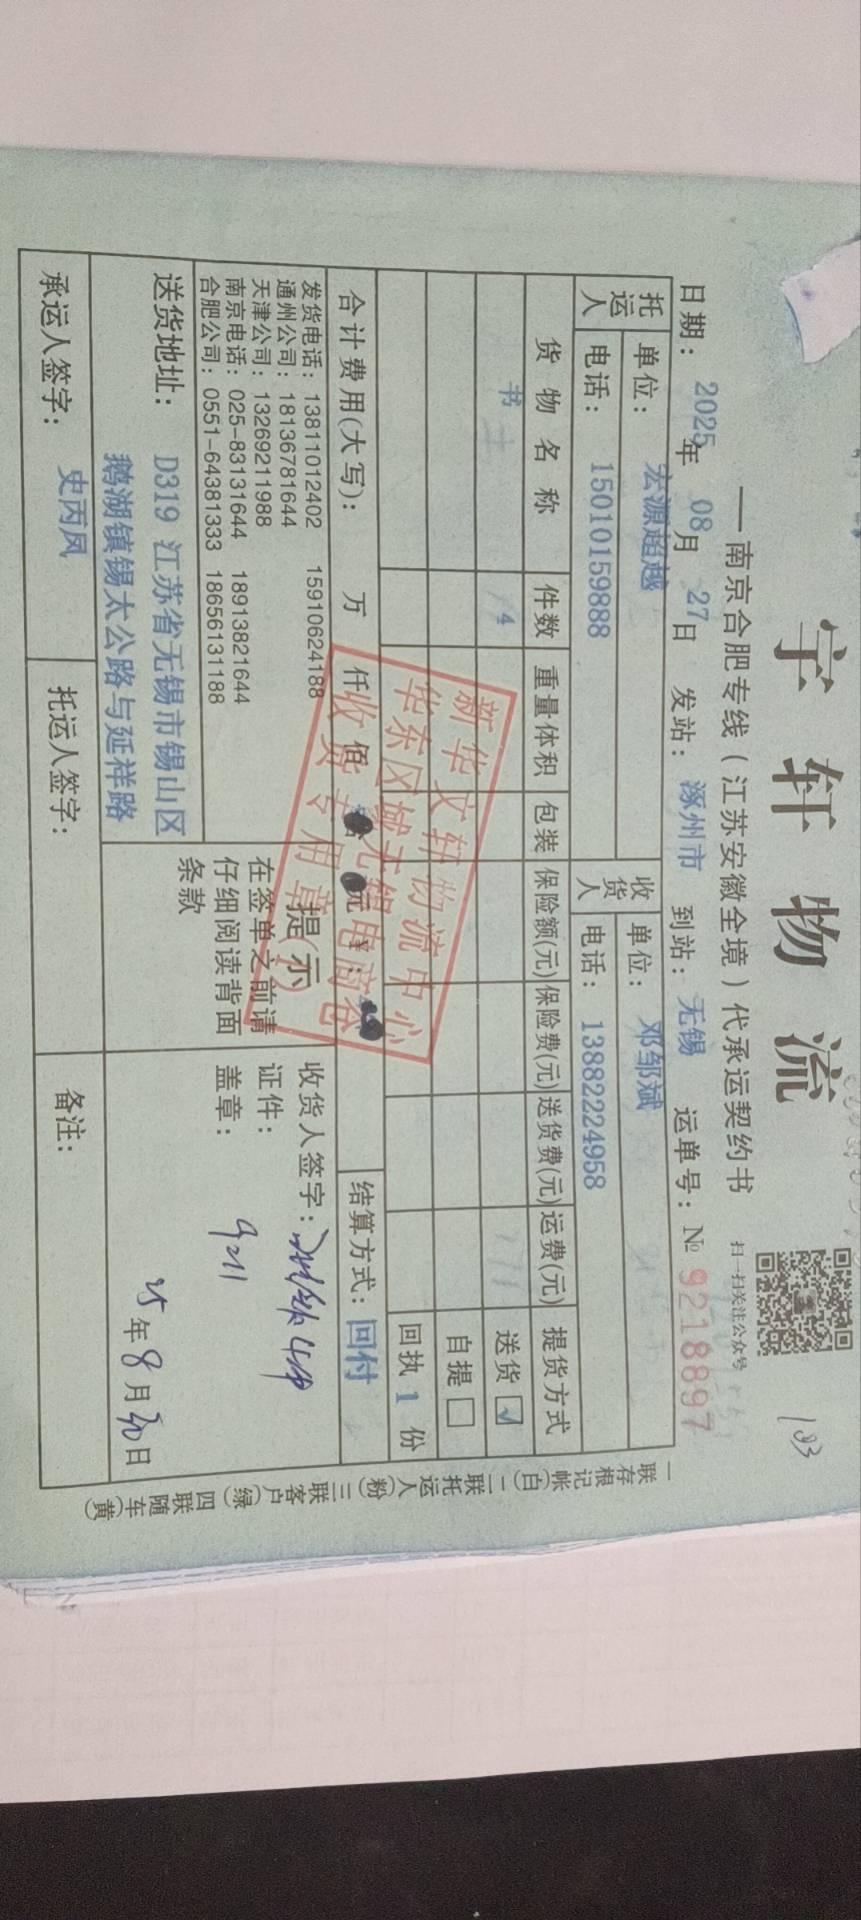 宇轩物流
扫一扫关注公众号
183
——南京合肥专线（江苏安徽全境）代承运契约书
日期：2025年08月27日 发站：涿州市 到站：无锡 运单号：№ 9218897
托运人 单位：宏源超越 收货人 单位：邓邹斌
电话：15010159888 电话：13882224958
货物名称 件数 重量体积 包装 保险额(元) 保险费(元) 送货费(元) 运费(元) 提货方式
书 14 送货 ☑
自提 □
回执 1 份
合计费用(大写)： 万 仟 佰 元 结算方式：回付
发货电话：13811012402 15910624188
通州公司：18136781644
天津公司：13269211988
南京电话：025-83131644 18913821644
合肥公司：0551-64381333 18656131188
提示
在签单之前请
仔细阅读背面
条款
收货人签字：
证件：
盖章：
9211
25年8月30日
送货地址：D319 江苏省无锡市锡山区
鹅湖镇锡太公路与延祥路
承运人签字：史丙凤 托运人签字： 备注：
新华文轩物流中心
华东区域无锡电商仓
收货专用章
一联存根记帐(白) 二联托运人(粉) 三联客户(绿) 四联随车(黄)